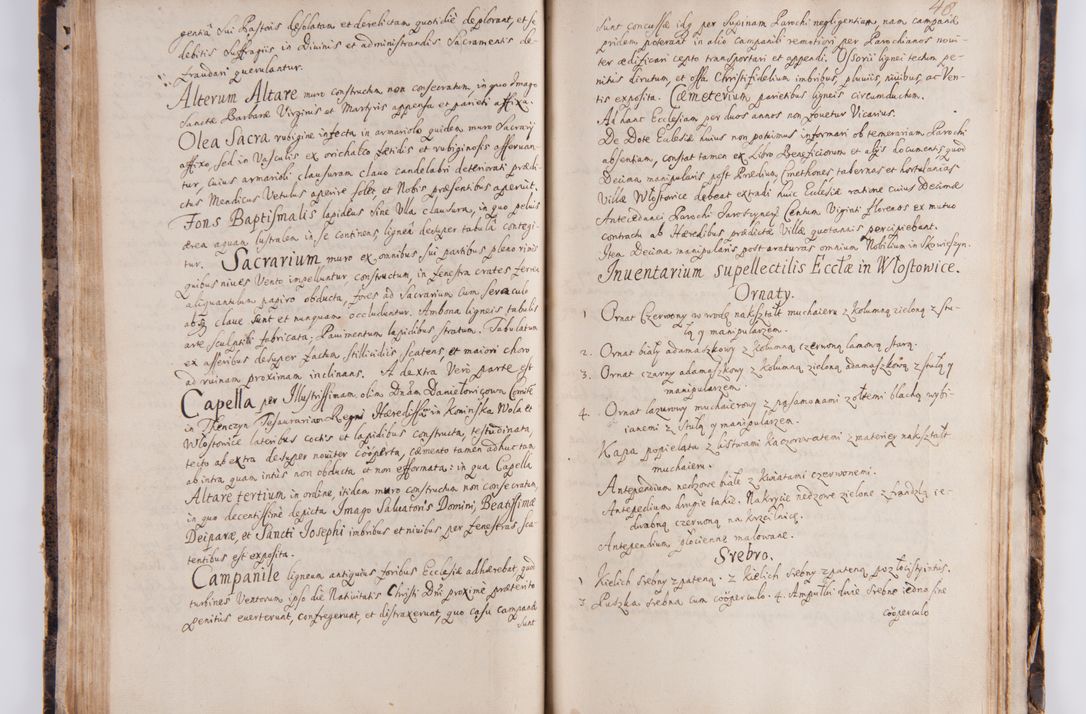 gentiã sui Pastoris desolatam et derelictam quotidiè deplorant, et se
debitis suffragijs in Divinis et administrandis Sacramentis de-
fraudari querulantur.
Alterum Altare muro constructum, non consecratum, in quo Imago
Sanctæ Barbaræ Virginis et Martyris appensa et parieti affixa.
Olea Sacra rubigine infecta in armariolo quidem muro Sacrarij
affixo, sed in Vasculis ex orichalco fætidis et rubiginosis asseruan-
tur, cuius armarioli clausuram clavo candelabri deteriorati prædi-
ctus Mendicus Vetulus aperire solet, et Nobis præsentibus aperuit.
Fons Baptismalis lapideus sine Ulla clausura, in quo peluis
ærea aquam lustralem in se continens, lignea desuper tabula contegi-
tur. Sacrarium muro ex omnibus sui partibus pleno rimis
quibus niues Vento impelluntur constructum, in fenestra crates ferrea
aliquantulum papiro obducta, fores ad Sacrarium cum seraculo
absq clave sunt et nunquam occluduntur. Ambona ligneis tabulis
arte sculptili fabricata, Pauimentum lapidibus stratum. Tabulatum
ex asseribus desuper factum stillicidijs scatens, et maiori choro
ad ruinam proximam inclinans. A dextra Verò parte est
Capella per Illustrissimam olim Dnãm Danielouiczowa Comite
in Thenczyn Thesaurario Regni Hæredissã in Koninska Wola et
Włostowice lateribus coctis et lapidibus constructa, testudinata,
tecto ab extra desuper nouiter coöperta, cæmento tamen adhuc tam
ab intra quam intùs non obducta et non efformata: in qua Capella
Altare tertium in ordine, itidem muro constructum non consecratum,
in quo decentissimè depicta Imago Saluatoris Domini, Beatissimæ
Deiparæ, et Sancti Iosephi imbribus et niuibus per fenestras sca-
tentibus est exposita.
Campanile ligneum antiquius foribus Ecclesiæ adhærebat, quod
turbines Ventorum ipso die Natiuitatis Christi Dñi proximè præterito
penitùs euerterunt, confregerunt, et distraxerunt, quo casu campanæ
sunt
48
sunt concussæ idq per supinam Parochi negligentiam, nam campanæ
pridem poterant in alio campanili remotiori per Parochianos noui-
ter ædificari cepto transportari et appendi. Ossorij lignei tectum pe-
nitùs dirutum, et ossa Christifidelium imbribus, pluuijs, niuibus, ac Ven-
tis exposita. Cæmeterium parietibus ligneis circumductum.
Ad hanc Ecclesiam per duos annos non fouetur Vicarius.
De Dote Ecclesiæ huius non potuimus informari ob temerariam Parochi
absentiam, constat tamen ex Libro Beneficiorum et alijs documentis quod
Decima manipularis post Prædium, Cmethones tabernas et hortulanias
Villæ Włostowice debeat extradi huic Ecclesiæ ratione cuius Decimæ
Antecedanei Parochi Jaroszyncy Centum Viginti florenos ex mutuo
contractu ab Hæredibus prædictæ Villæ quotannis percipiebant.
Item Decima manipularis post araturas omnium Nobilium in Skowieszyn.
Inuentarium supellectilis Eccłæ in Włostowice.
Ornaty.
1 Ornat Czerwony w wrodz nakształt muchaieru z kolumną zieloną z stu-
łą y manipularzem.
2. Ornat biały adamaszkowy z kolumną czerwoną lamową starą.
3. Ornat czarny adamaszkowy z kolumną zieloną adamaszkową z stułą y
manipularzem.
4. Ornat lazurowy muchaierowy z pasamonami żołtemi blachą wybi-
ianemi z stułą y manipularzem.
Kapa popielata z listwami kaczorowatemi z materiey nakształt
muchaieru.
Antependium nedzowe białe z kwiatami czerwonemi.
Antepedium drugie takie. Nakrycie nedzowe zielone z frandzlą ie-
dwabną czerwoną na krzcilnicę.
Antependium płocienne malowane.
Srebro.
1 Kielich srebny z pateną. 2 Kielich srebny z pateną pozłocisty intus.
3 Puszka srebna cum coöperculo. 4. Ampułki dwie srebne iedno sine
coöperculo